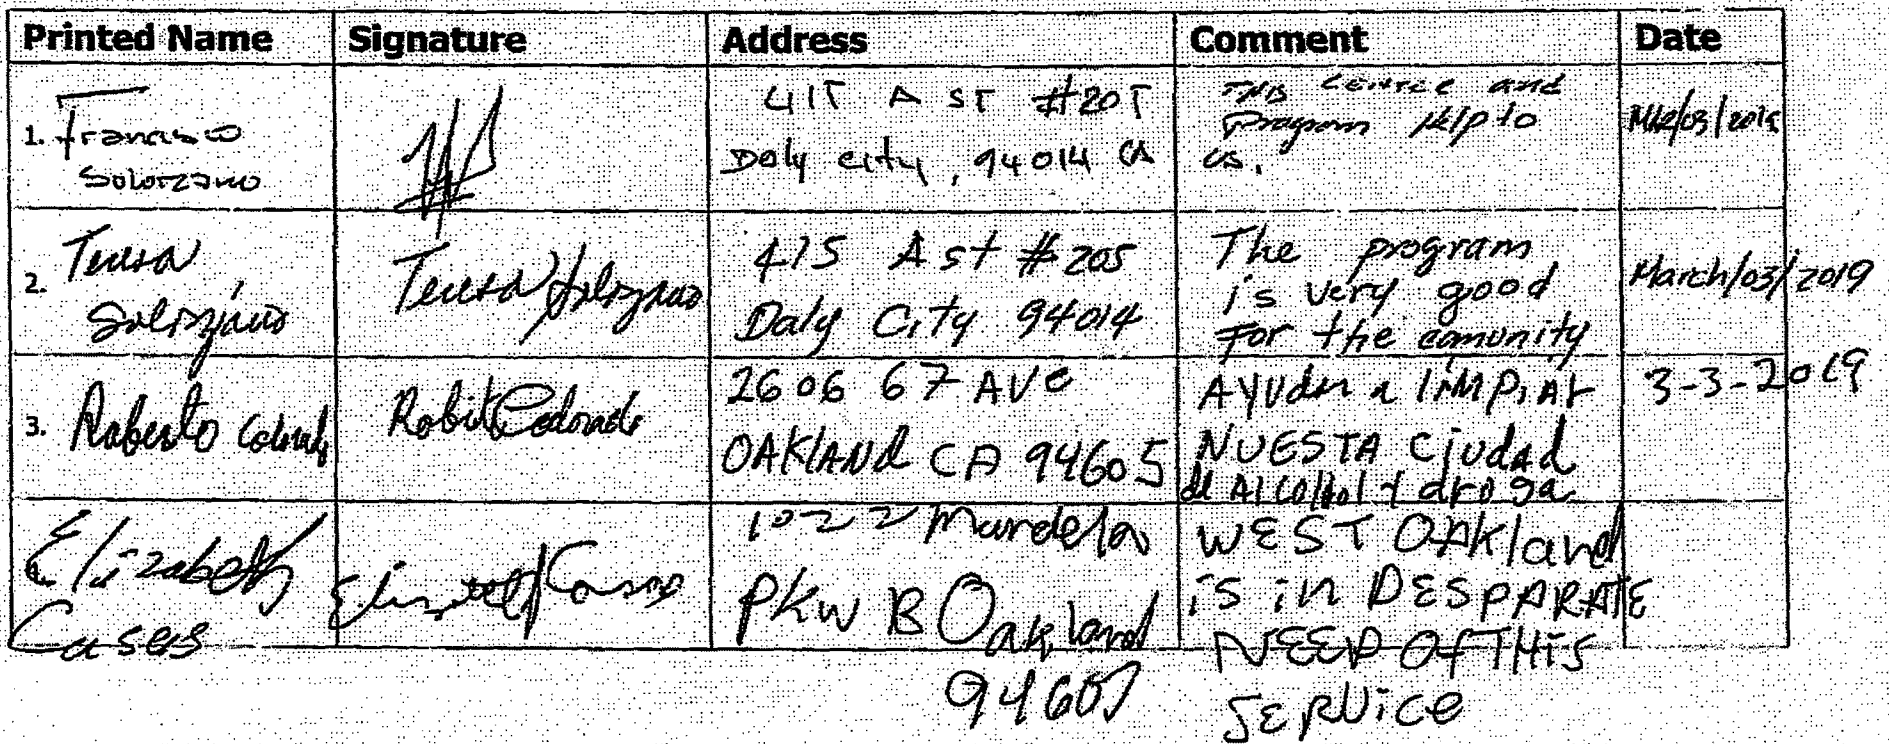 Printed Name Signature Address Comment Date
1. Francisco Solorzano 415 A ST #205 Daly City, 94014 CA This centre and Program Help to us. Mar/03/2019
2. Teresa Solorzano Teresa Solorzano 415 A st #205 Daly City 94014 The program is very good For the comunity March/03/2019
3. Roberto 2606 67 AVe OAKLANd CA 94605 AYUdan a lIMPiAr NUESTA Ciudad de AlCoHol Y droga 3-3-2019
Elizabeth Cases 1022 Mandela PKW B Oakland 94607 WEST OAKland is in DESPARATE NEED OF THiS SERVice